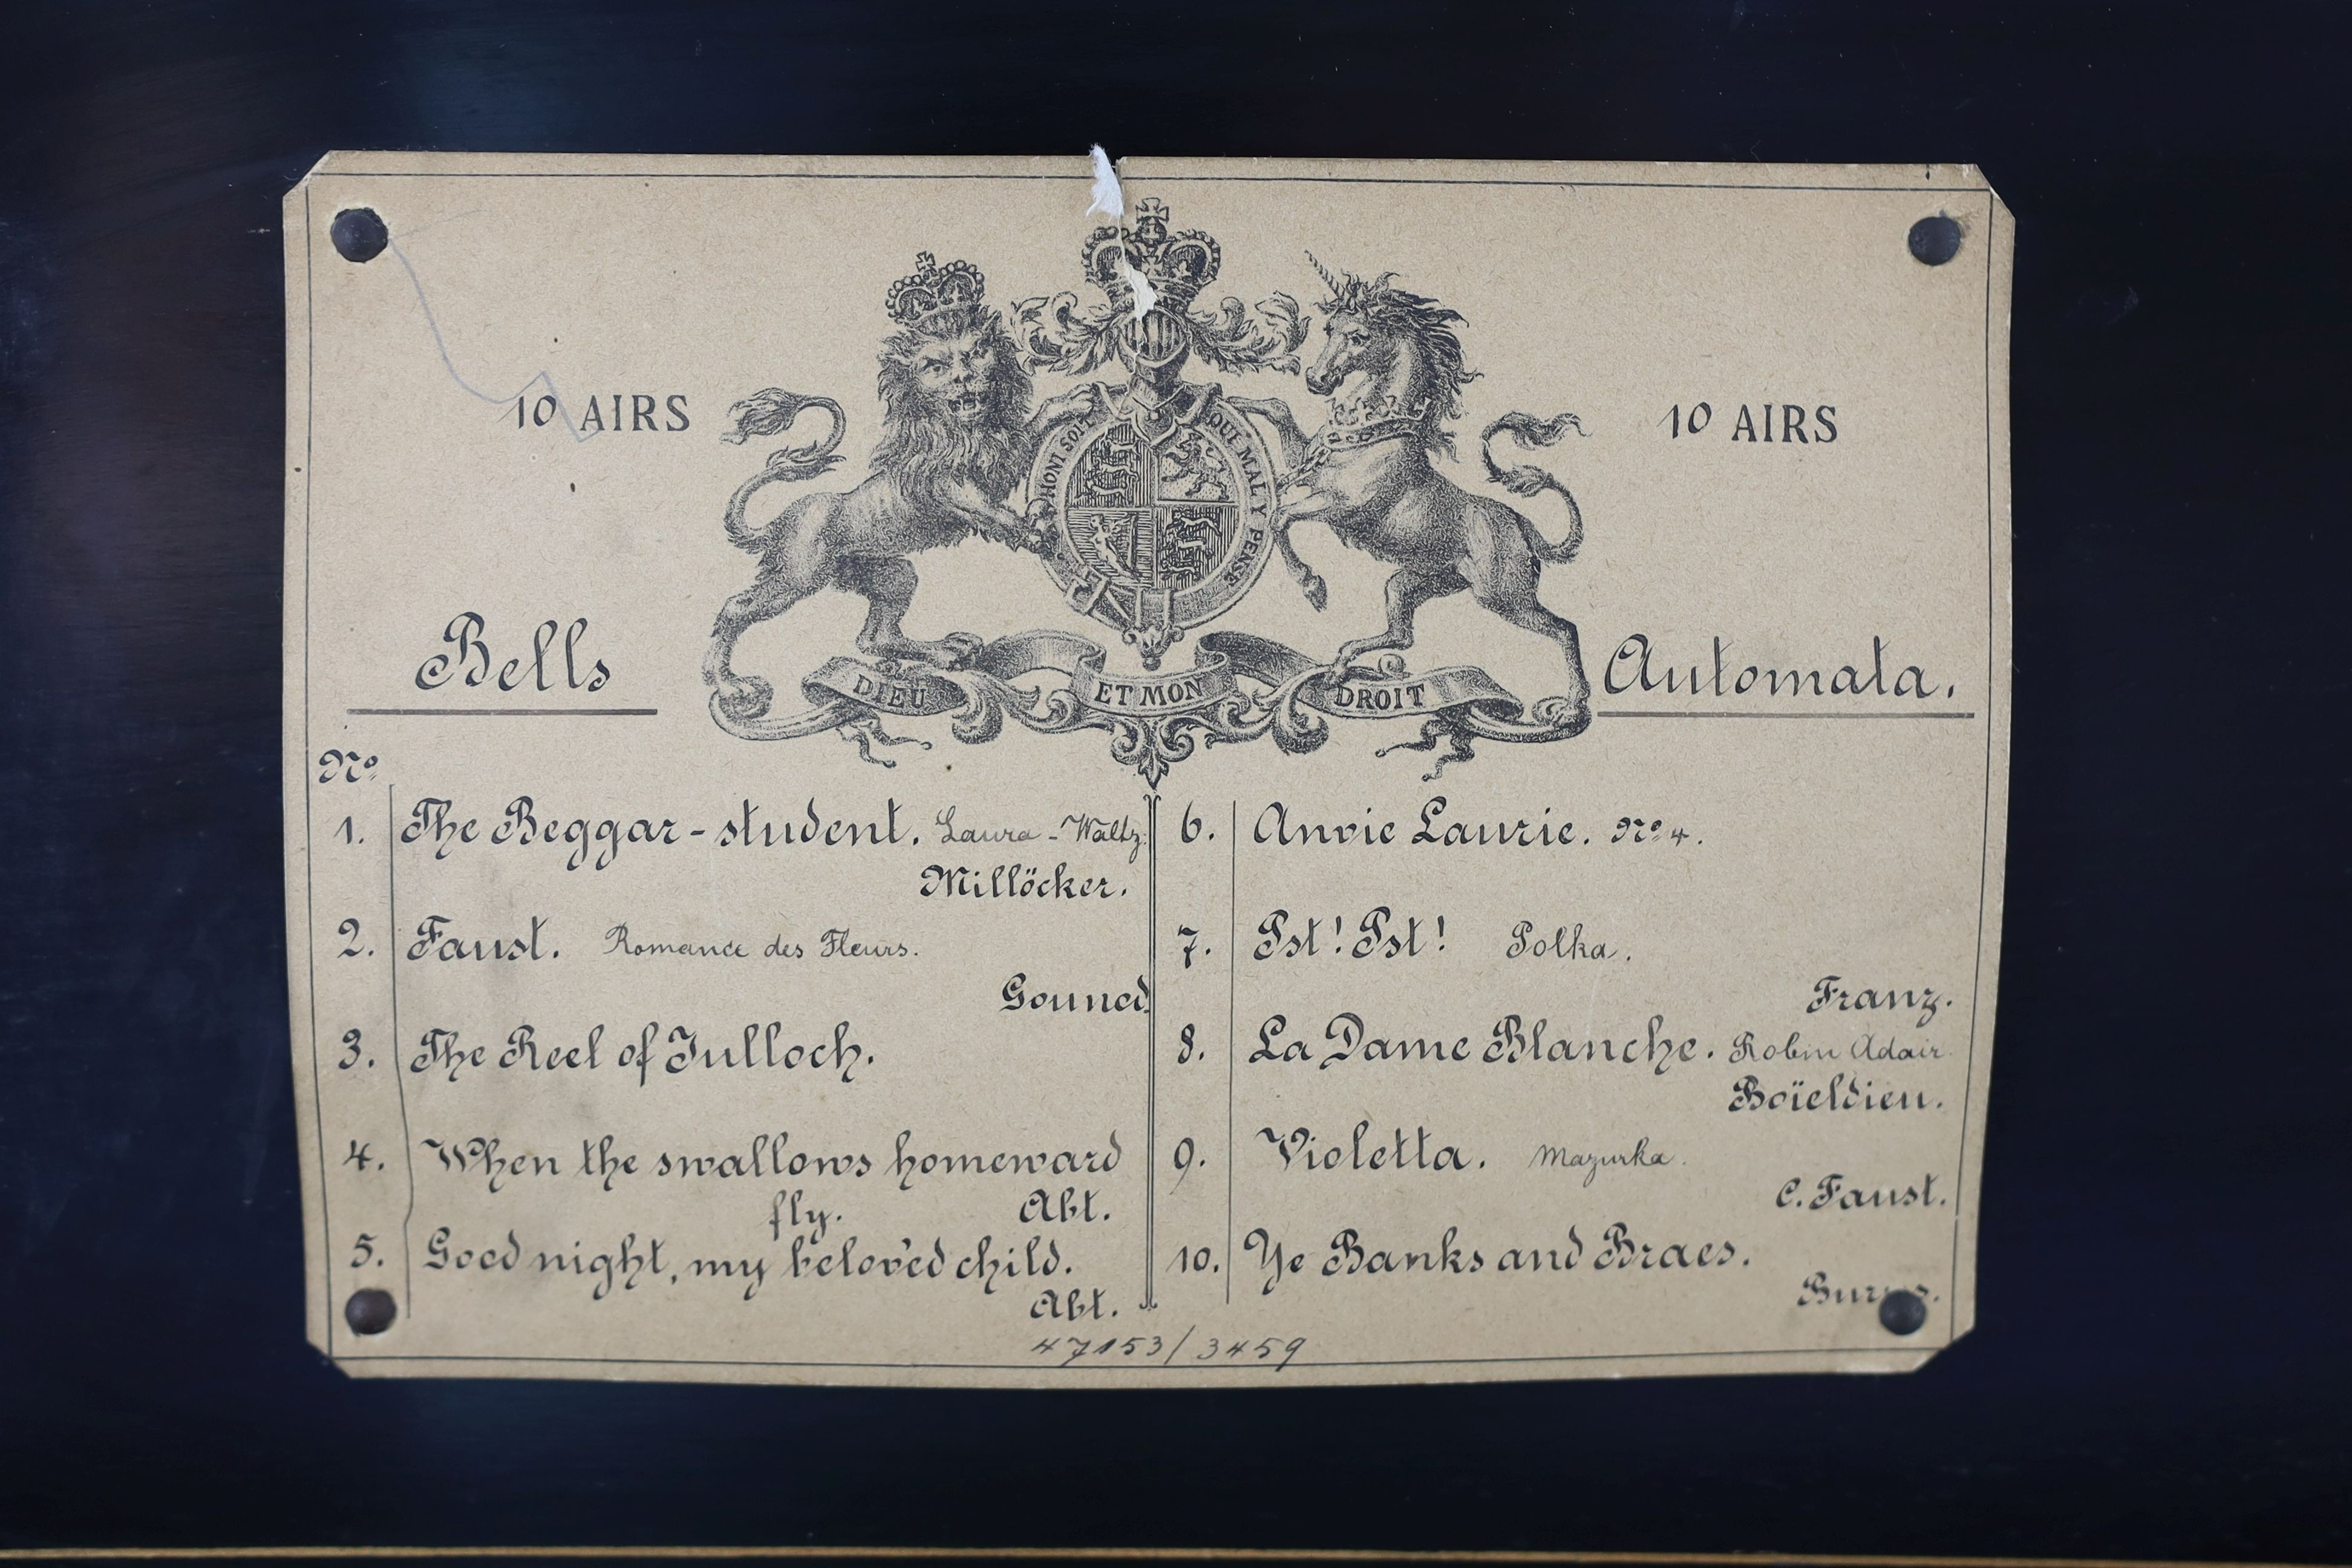 10 AIRS
10 AIRS
HONI SOIT QUI MAL Y PENSE
DIEU ET MON DROIT
Bells
Automata.
No.
1. The Beggar-student. Laura-Waltz.
Millöcker.
2. Faust. Romance des Fleurs.
Gounod.
3. The Reel of Tulloch.
4. When the swallows homeward
fly. Abt.
5. Good night, my beloved child.
Abt.
6. Annie Laurie. No. 4.
7. Pst! Pst! Polka.
Franz.
8. La Dame Blanche. Robin Adair.
Boïeldieu.
9. Violetta. Mazurka.
C. Faust.
10. Ye Banks and Braes.
Burns.
47153/3459